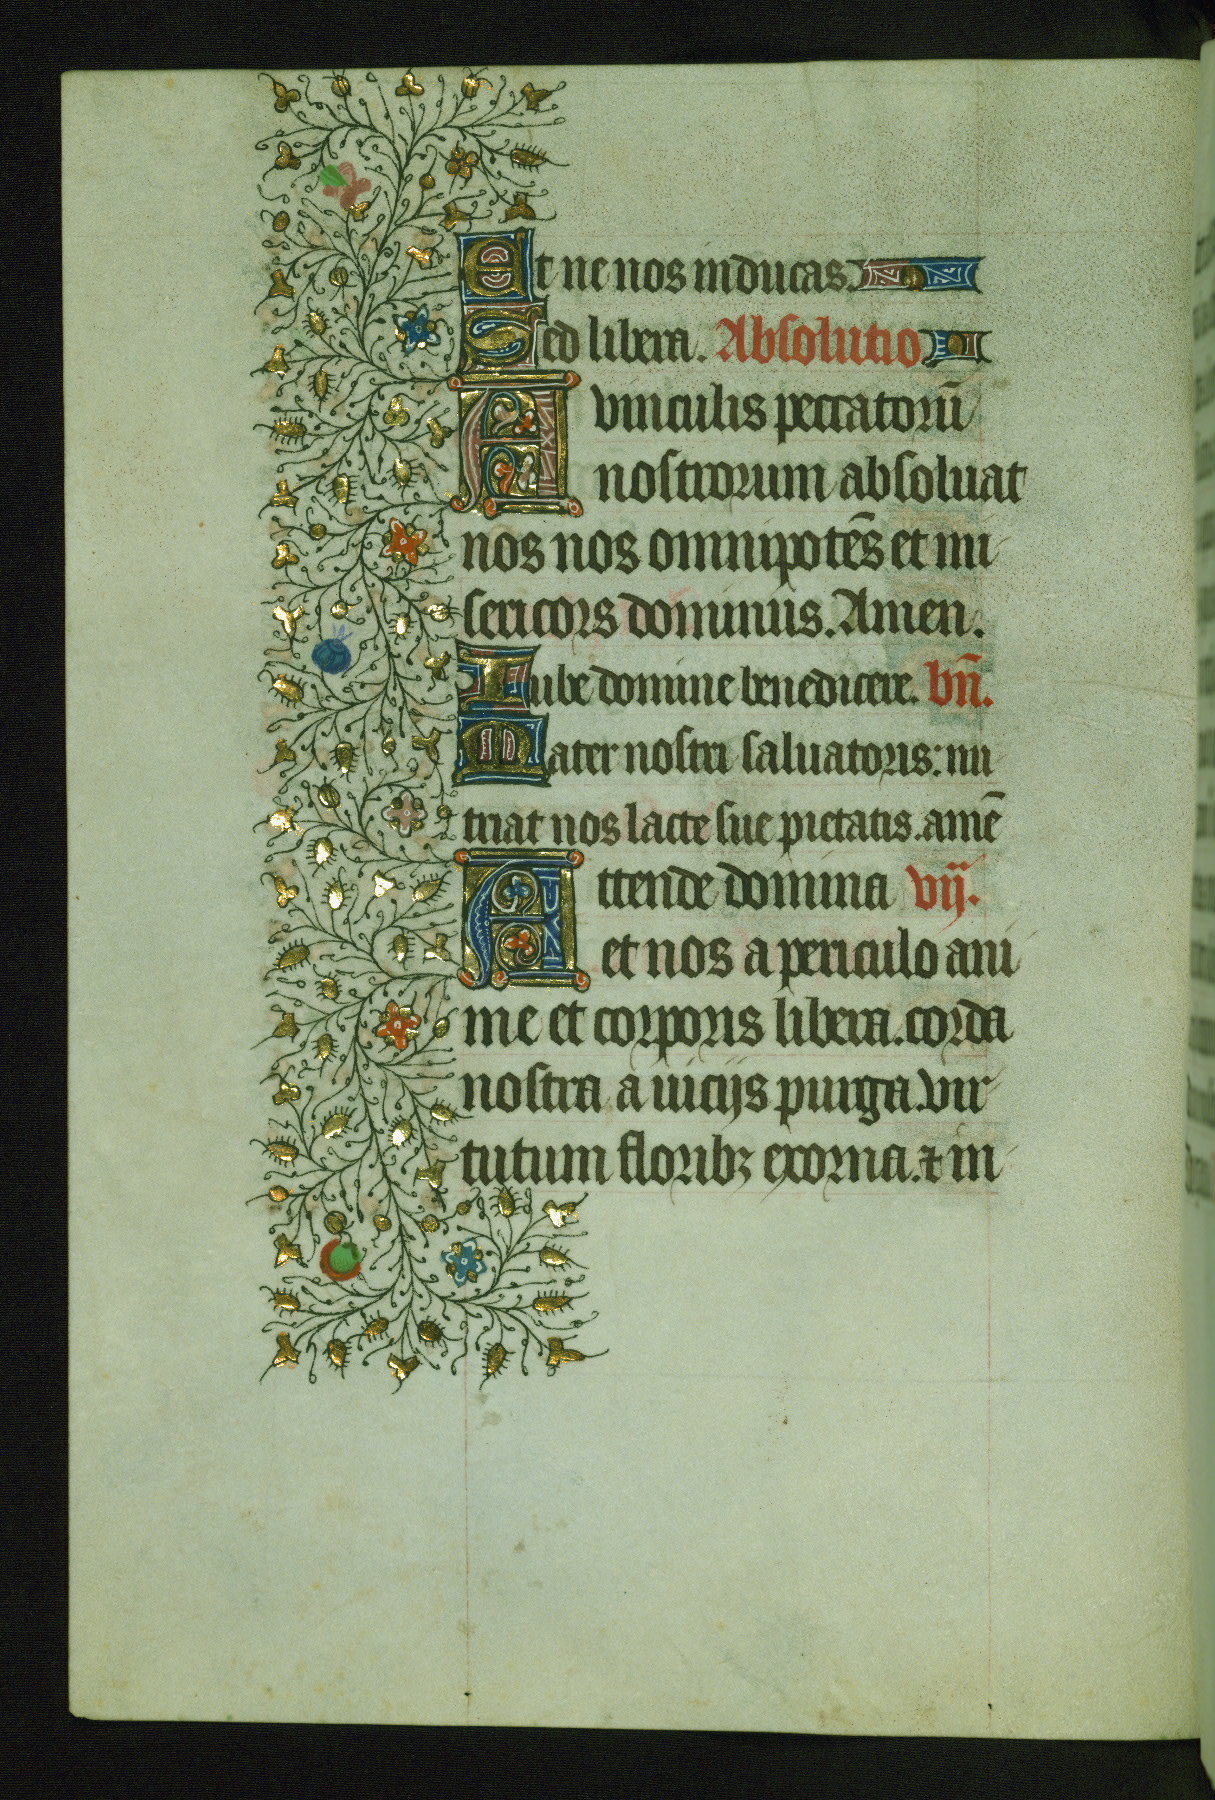 Et ne nos inducas.
Sed libera. Absolutio
A vinculis peccatorũ
nostrorum absoluat
nos nos omnipotẽs et mi
sericors dominus. Amen.
Iube domine benedicere. bñ.
Mater nostri saluatoris: nu
triat nos lacte sue pietatis. amẽ
Attende domina vij.
et nos a periculo ani
me et corporis libera. corda
nostra a uicijs purga. vir
tutum floribꝫ exorna. ⁊ in